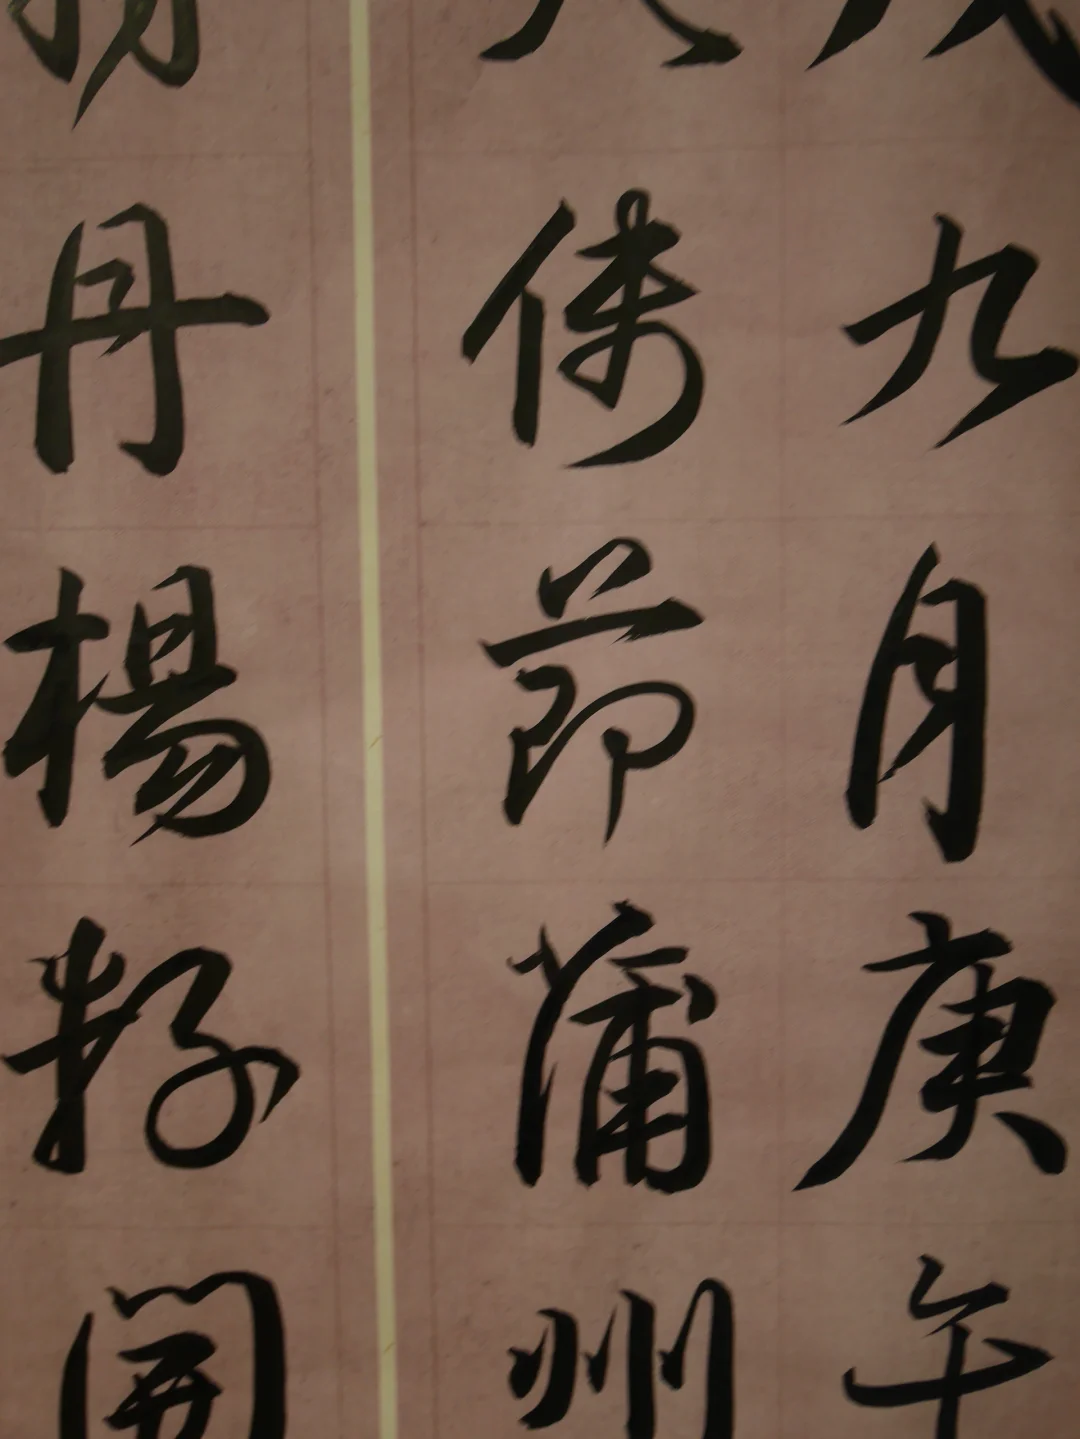 九月庚午
持節蒲州
丹楊縣開